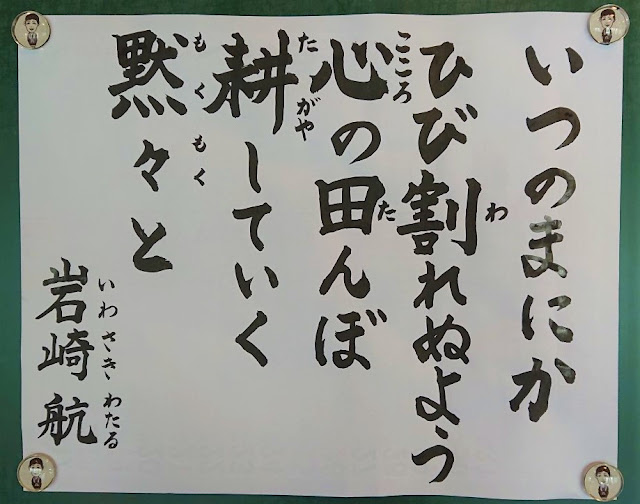 いつのまにか
ひび割れぬよう
わ
心の田んぼ
こころ
た
耕していく
たがや
黙々と
もくもく
岩崎航
いわさきわたる